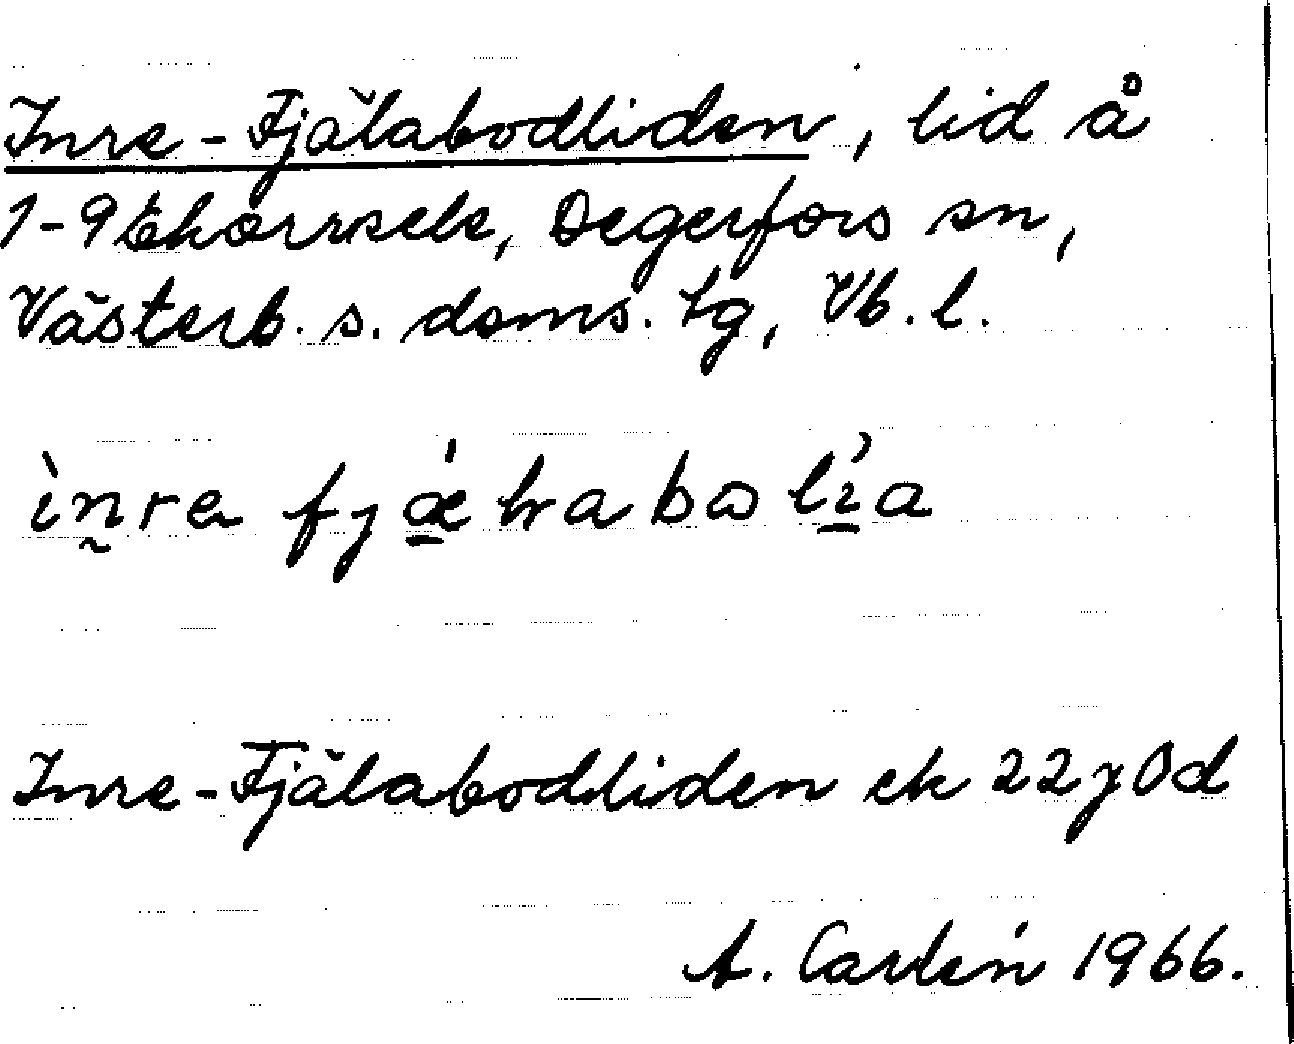 Inre-Fjälabodliden, lid å
1-9 Ekorrsele, Degerfors sn,
Västerb. s. doms. tg, Vb. l.
Inre-Fjälabodliden ek 22 j 0 d
A. Carlén 1966.